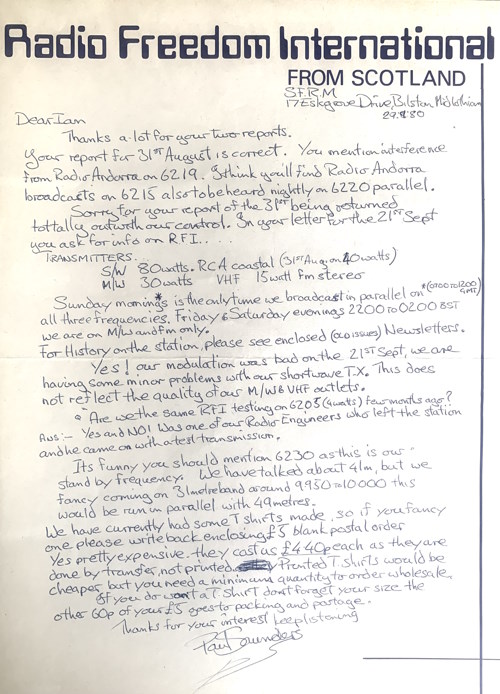 Radio Freedom International
FROM SCOTLAND
S.F.R.M
17 Eskgrove Drive, Bilston, Midlothian
29.9.80
Dear Ian
Thanks a lot for your two reports.
Your report for 31ST August is correct. You mention interference
from Radio Andorra on 6219. I think you'll find Radio Andorra
broadcasts on 6215 also to be heard nightly on 6220 parallel.
Sorry for your report of the 31ST being returned
tottally outwith our control. In your letter for the 21ST Sept
you ask for info on RFI....
TRANSMITTERS...
S/W 80watts. RCA coastal (31ST Aug. on 40watts)
M/W 30watts VHF 15watt fm stereo
Sunday mornings* is the only time we broadcast in parallel on *(0700 to 1200 GMT)
all three frequencies. Friday & Saturday evenings 2200 to 0200 BST
we are on M/W and fm only.
For History on the station, please see enclosed (OLD ISSUES) Newsletters.
Yes! our modulation was bad on the 21ST Sept, we are
having some minor problems with our shortwave T.X. This does
not reflect the quality of our M/W & VHF outlets.
" Are we the same RFI testing on 6205 (4watts) few months ago?
Ans:- Yes and NO! Was one of our Radio Engineers who left the station
and he came on with a test transmission.
Its funny you should mention 6230 as this is our
stand by frequency. We have talked about 41m, but we
fancy coming on 31metreband around 9950 to 10000 this
would be run in parallel with 49metres.
We have currently had some T shirts made, so if you fancy
one please write back enclosing £5 blank postal order
Yes pretty expensive. they cost us £4.40p each as they are
done by transfer, not printed. Printed T. Shirts would be
cheaper but you need a minimum quantity to order wholesale,
If you do want a T Shirt dont forget your size the
other 60p of your £5 goes to packing and postage.
Thanks for your interest keep listening
Paul Saunders